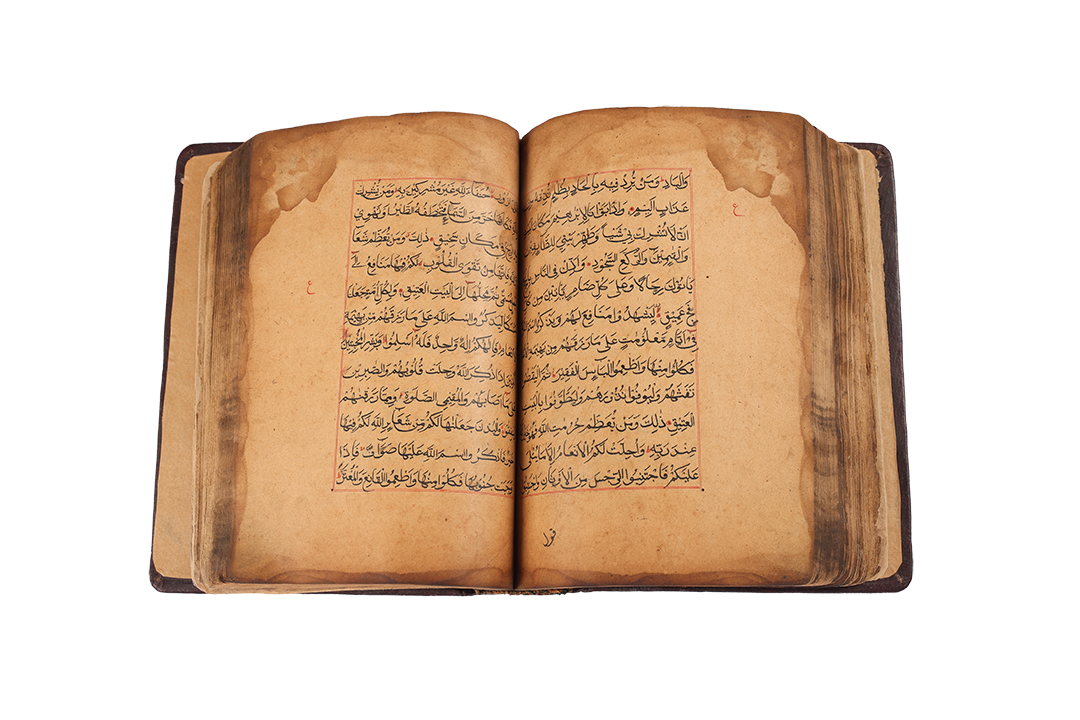 وَالْبَادِ وَمَنْ يُرِدْ فِيهِ بِاِلْحَادٍ بِظُلْمٍ نُذِقْهُ
عَذَابٍ اَلِيْمٍ وَاِذْ بَوَّاْنَا لِاِبْرٰهِيْمَ مَكَانَ
اَنْ لَا تُشْرِكْ بِيْ شَيْئًا وَطَهِّرْ بَيْتِيَ لِلطَّائِفِيْنَ
وَالْقَائِمِيْنَ وَالرُّكَّعِ السُّجُوْدِ وَاَذِّنْ فِى النَّاسِ
يَاْتُوْكَ رِجَالًا وَعَلٰى كُلِّ ضَامِرٍ يَاْتِيْنَ مِنْ كُلِّ
فَجٍّ عَمِيْقٍ لِيَشْهَدُوْا مَنَافِعَ لَهُمْ وَيَذْكُرُوا
فِىْ اَيَّامٍ مَعْلُوْمٰتٍ عَلٰى مَا رَزَقَهُمْ مِنْ بَهِيْمَةِ
فَكُلُوْا مِنْهَا وَاَطْعِمُوا الْبَائِسَ الْفَقِيْرَ ثُمَّ لْيَقْضُوْا
تَفَثَهُمْ وَلْيُوْفُوْا نُذُوْرَهُمْ وَلْيَطَّوَّفُوْا بِالْبَيْتِ
الْعَتِيْقِ ذٰلِكَ وَمَنْ يُعَظِّمْ حُرُمٰتِ اللهِ فَهُوَ
عِنْدَ رَبِّهٖ وَاُحِلَّتْ لَكُمُ الْاَنْعَامُ اِلَّا مَا يُتْلٰى
عَلَيْكُمْ فَاجْتَنِبُوا الرِّجْسَ مِنَ الْاَوْثَانِ
ع
قول
حُنَفَاءَ لِلّٰهِ غَيْرَ مُشْرِكِيْنَ بِهٖ وَمَنْ يُشْرِكْ
خَرَّ مِنَ السَّمَاءِ فَتَخْطَفُهُ الطَّيْرُ اَوْ تَهْوِيْ
فِىْ مَكَانٍ سَحِيْقٍ ذٰلِكَ وَمَنْ يُعَظِّمْ شَعَا
فَاِنَّهَا مِنْ تَقْوَى الْقُلُوْبِ لَكُمْ فِيْهَا مَنَافِعُ اِلٰى
ثُمَّ مَحِلُّهَا اِلَى الْبَيْتِ الْعَتِيْقِ وَلِكُلِّ اُمَّةٍ جَعَلْنَا
لِيَذْكُرُوا اسْمَ اللهِ عَلٰى مَا رَزَقَهُمْ مِنْ بَهِيْمَةِ
فَاِلٰهُكُمْ اِلٰهٌ وَاحِدٌ فَلَهٗ اَسْلِمُوْا وَبَشِّرِ الْمُخْبِتِيْنَ
اِذَا ذُكِرَ اللهُ وَجِلَتْ قُلُوْبُهُمْ وَالصّٰبِرِيْنَ
مَا اَصَابَهُمْ وَالْمُقِيْمِى الصَّلٰوةِ وَمِمَّا رَزَقْنٰهُمْ
وَالْبُدْنَ جَعَلْنٰهَا لَكُمْ مِنْ شَعَائِرِ اللهِ لَكُمْ فِيْهَا
فَاذْكُرُوا اسْمَ اللهِ عَلَيْهَا صَوَافَّ فَاِذَا
وَجَبَتْ جُنُوْبُهَا فَكُلُوْا مِنْهَا وَاَطْعِمُوا الْقَانِعَ وَالْمُعْتَرَّ
ع